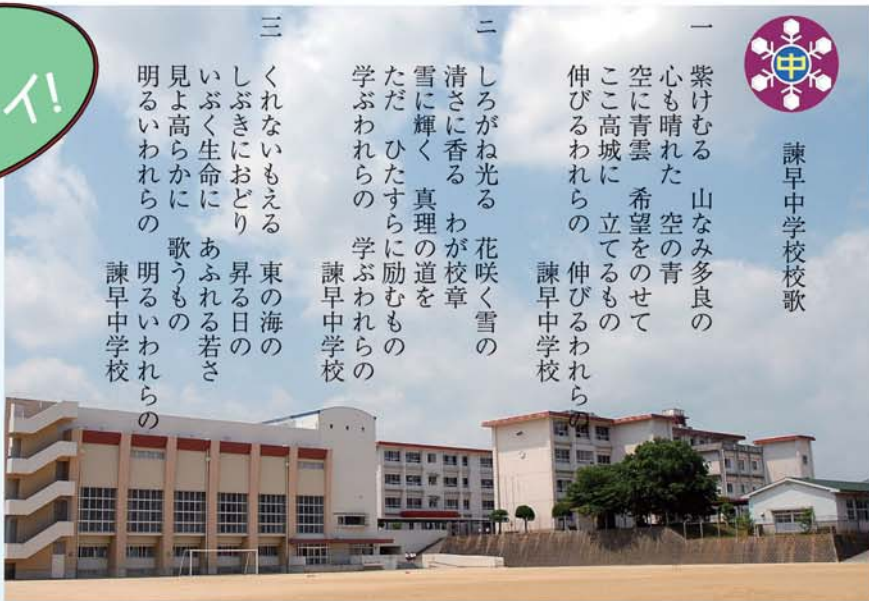 イ!
中
諫早中学校校歌
一 紫けむる 山なみ多良の
心も晴れた 空の青
空に青雲 希望をのせて
ここ高城に 立てるもの
伸びるわれらの 伸びるわれらの
諫早中学校
二 しろがね光る 花咲く雪の
清さに香る わが校章
雪に輝く 真理の道を
ただ ひたすらに励むもの
学ぶわれらの 学ぶわれらの
諫早中学校
三 くれないもえる 東の海の
しぶきにおどり 昇る日の
いぶく生命に あふれる若さ
見よ高らかに 歌うもの
明るいわれらの 明るいわれらの
諫早中学校